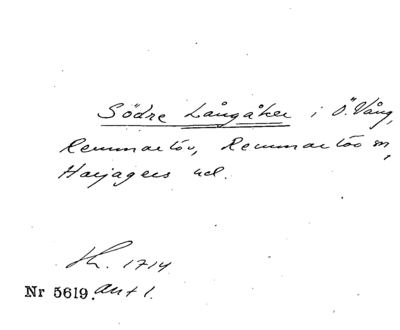 Södre Långåker i Ö. Vång,
Remmarlöv, Remmarlöv sn,
Harjagers hd.
Lh. 1714
Nr 5619. ant 1.